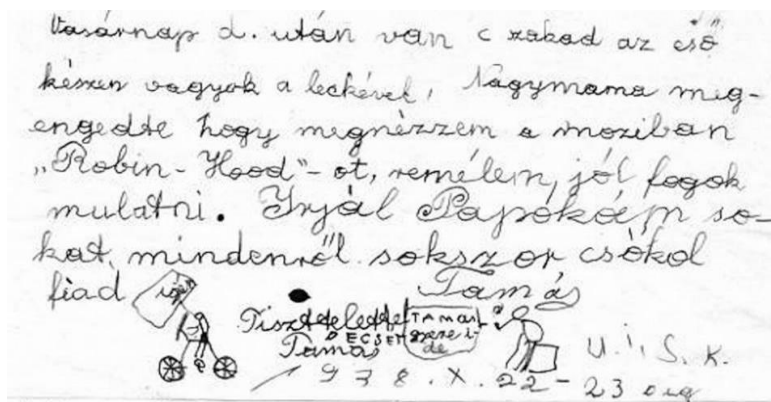 Vasárnap d. után van c szakad az eső
készen vagyok a leckével, Nagymama meg-
engedte hogy megnézzem a moziban
„Robin-Hood"-ot, remélem, jól fogok
mulatni. Írjál Papókám so-
kat, mindenről. sokszor csókol
fiad Tamás
Tisztelettel
DECSET
Tamás
TAMAS
gyere i
de
U. i. S. k.
938. X. 22-23 dig